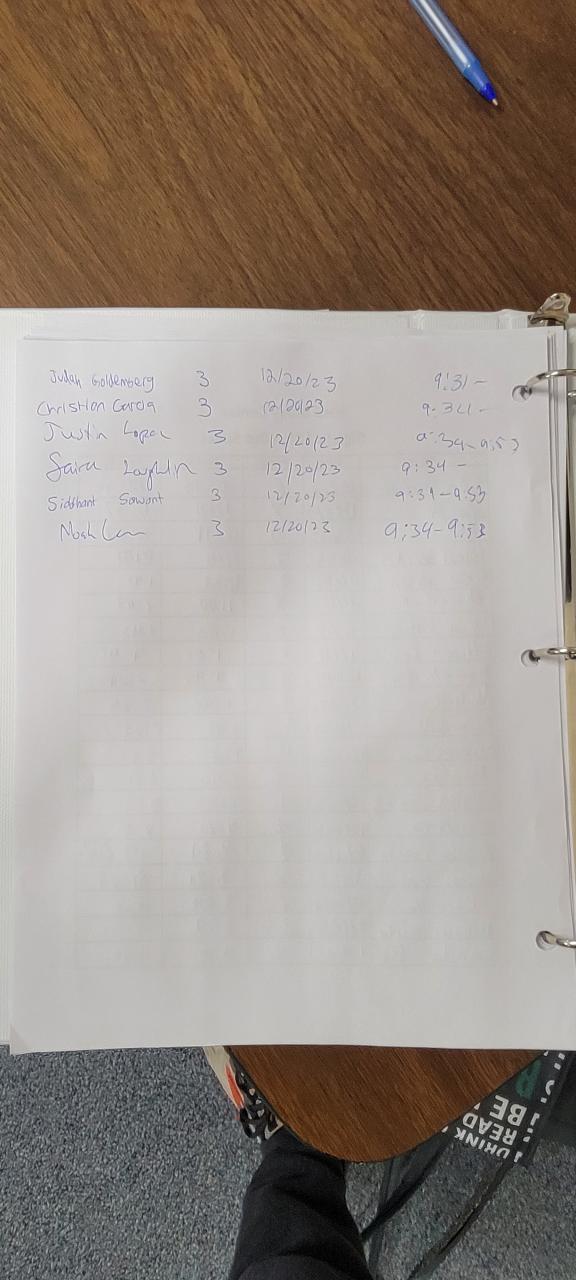 Judah Goldemberg 3 12/20/23 9:31 -
Christian Garcia 3 12/20/23 9:34 -
Justin Lopez 3 12/20/23 9:34-9:53
Saira 3 12/20/23 9:34 -
Siddhant Sawant 3 12/20/23 9:34-9:53
Noah 3 12/20/23 9:34-9:53
BE
READ
DRINK